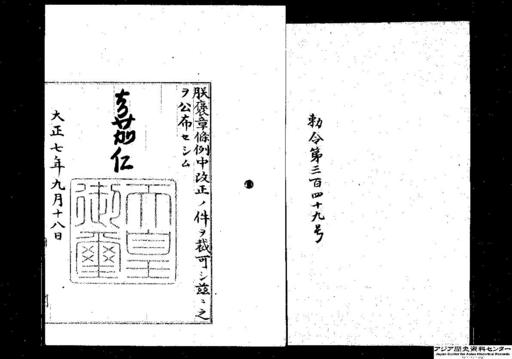 勅令第三百四十九号
朕褒章條例中改正ノ件ヲ裁可シ茲ニ之
ヲ公布セシム
嘉仁
天皇
御璽
大正七年九月十八日
アジア歴史資料センター
Japan Center for Asian Historical Records